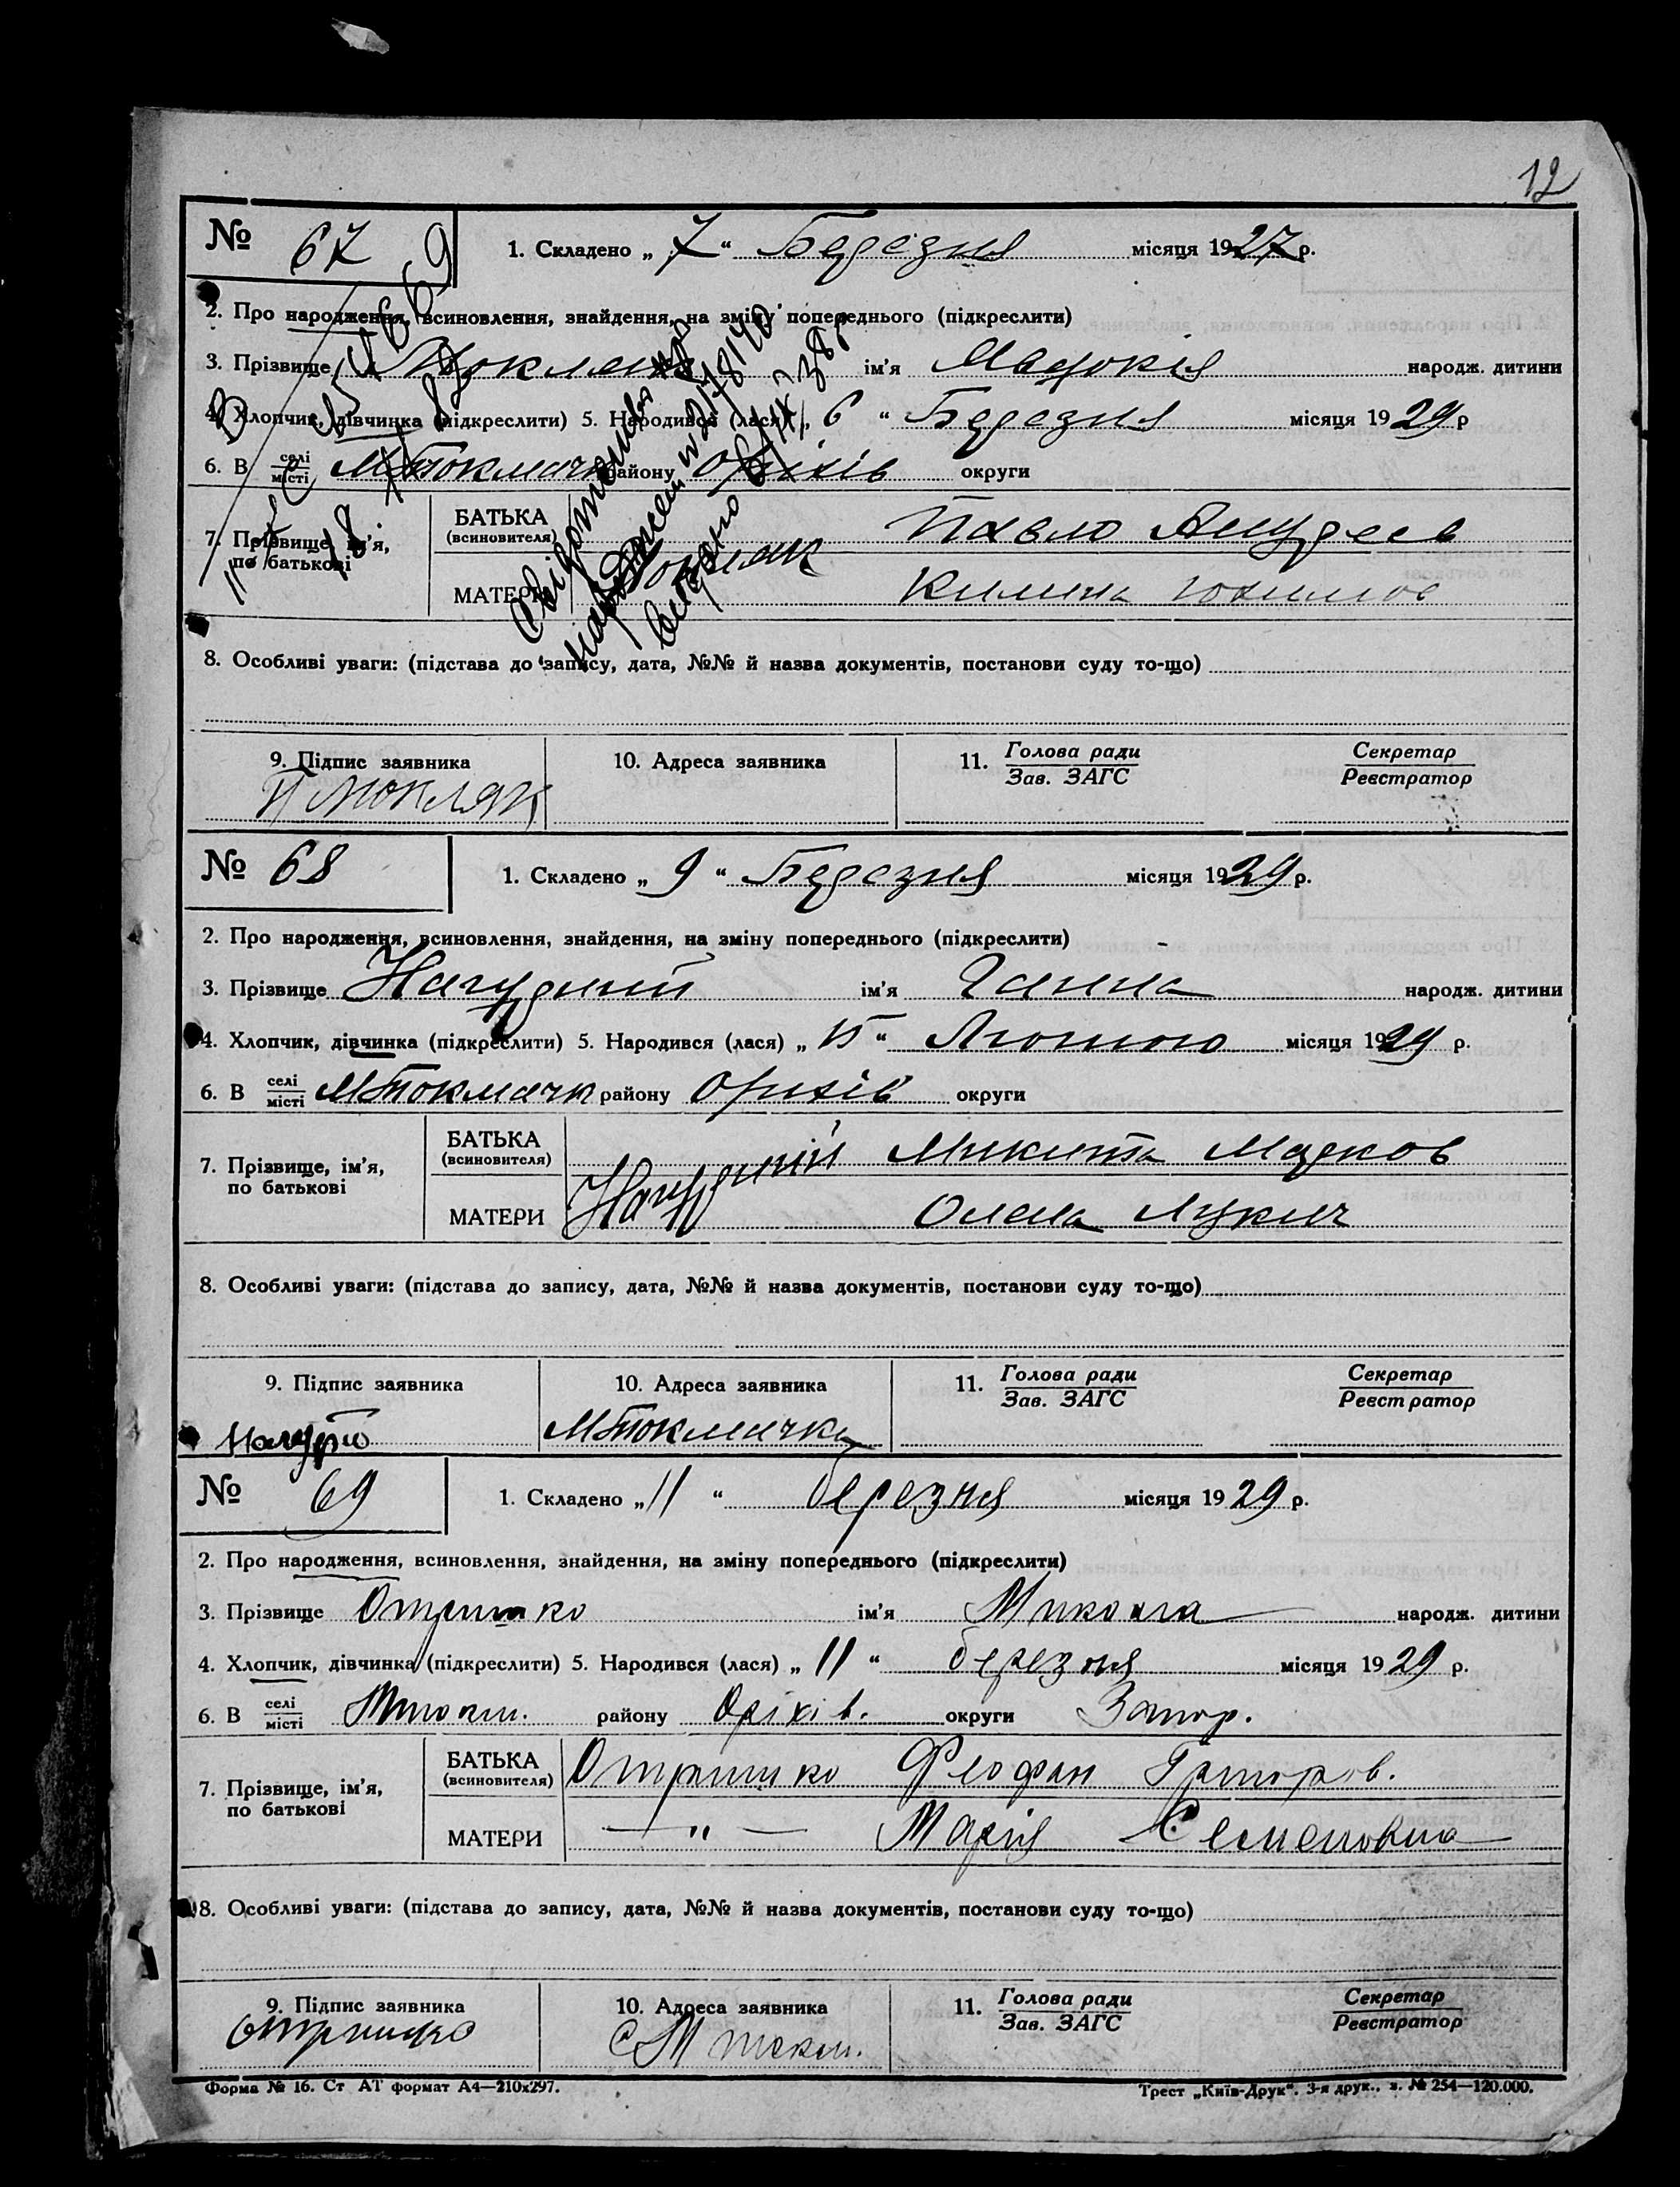 12
№ 67
1. Складено „ 7 “ Березня місяця 1927 р.
2. Про народження, всиновлення, знайдення, на зміну попереднього (підкреслити)
3. Прізвище ім'я народж. дитини
4. Хлопчик, дівчинка (підкреслити) 5. Народився (лася) „ 6 “ Березня місяця 1929 р
6. В селі/місті МТокмачк району Оріхів округи
7. Прізвище, ім'я, по батькові
БАТЬКА (всиновителя) Павло
МАТЕРИ
Свідотство про
народжен № 2178140
видано
8. Особливі уваги: (підстава до запису, дата, №№ й назва документів, постанови суду то-що)
9. Підпис заявника 10. Адреса заявника 11. Голова ради/Зав. ЗАГС Секретар/Реєстратор
№ 68
1. Складено „ 9 “ Березня місяця 1929 р.
2. Про народження, всиновлення, знайдення, на зміну попереднього (підкреслити)
3. Прізвище Нагурний ім'я Ганна народж. дитини
4. Хлопчик, дівчинка (підкреслити) 5. Народився (лася) „ 15 “ Лютого місяця 1929 р.
6. В селі/місті МТокмачк району Оріхів округи
7. Прізвище, ім'я, по батькові
БАТЬКА (всиновителя) Нагурний Микита Марков
МАТЕРИ Олена Лукич
8. Особливі уваги: (підстава до запису, дата, №№ й назва документів, постанови суду то-що)
9. Підпис заявника 10. Адреса заявника 11. Голова ради/Зав. ЗАГС Секретар/Реєстратор
МТокмачка
№ 69
1. Складено „ 11 “ березня місяця 1929 р.
2. Про народження, всиновлення, знайдення, на зміну попереднього (підкреслити)
3. Прізвище Отришко ім'я Микола народж. дитини
4. Хлопчик, дівчинка (підкреслити) 5. Народився (лася) „ 11 “ березня місяця 1929 р.
6. В селі/місті Мтокм. району Оріхів. округи Запор.
7. Прізвище, ім'я, по батькові
БАТЬКА (всиновителя) Отришко Феофан Григоров.
МАТЕРИ — „ — Марія Семеновна
8. Особливі уваги: (підстава до запису, дата, №№ й назва документів, постанови суду то-що)
9. Підпис заявника 10. Адреса заявника 11. Голова ради/Зав. ЗАГС Секретар/Реєстратор
Отришко С М токм.
Форма № 16. Ст АТ формат А4—210х297. Трест „Київ-Друк“. 3-я друк., з. № 254—120.000.